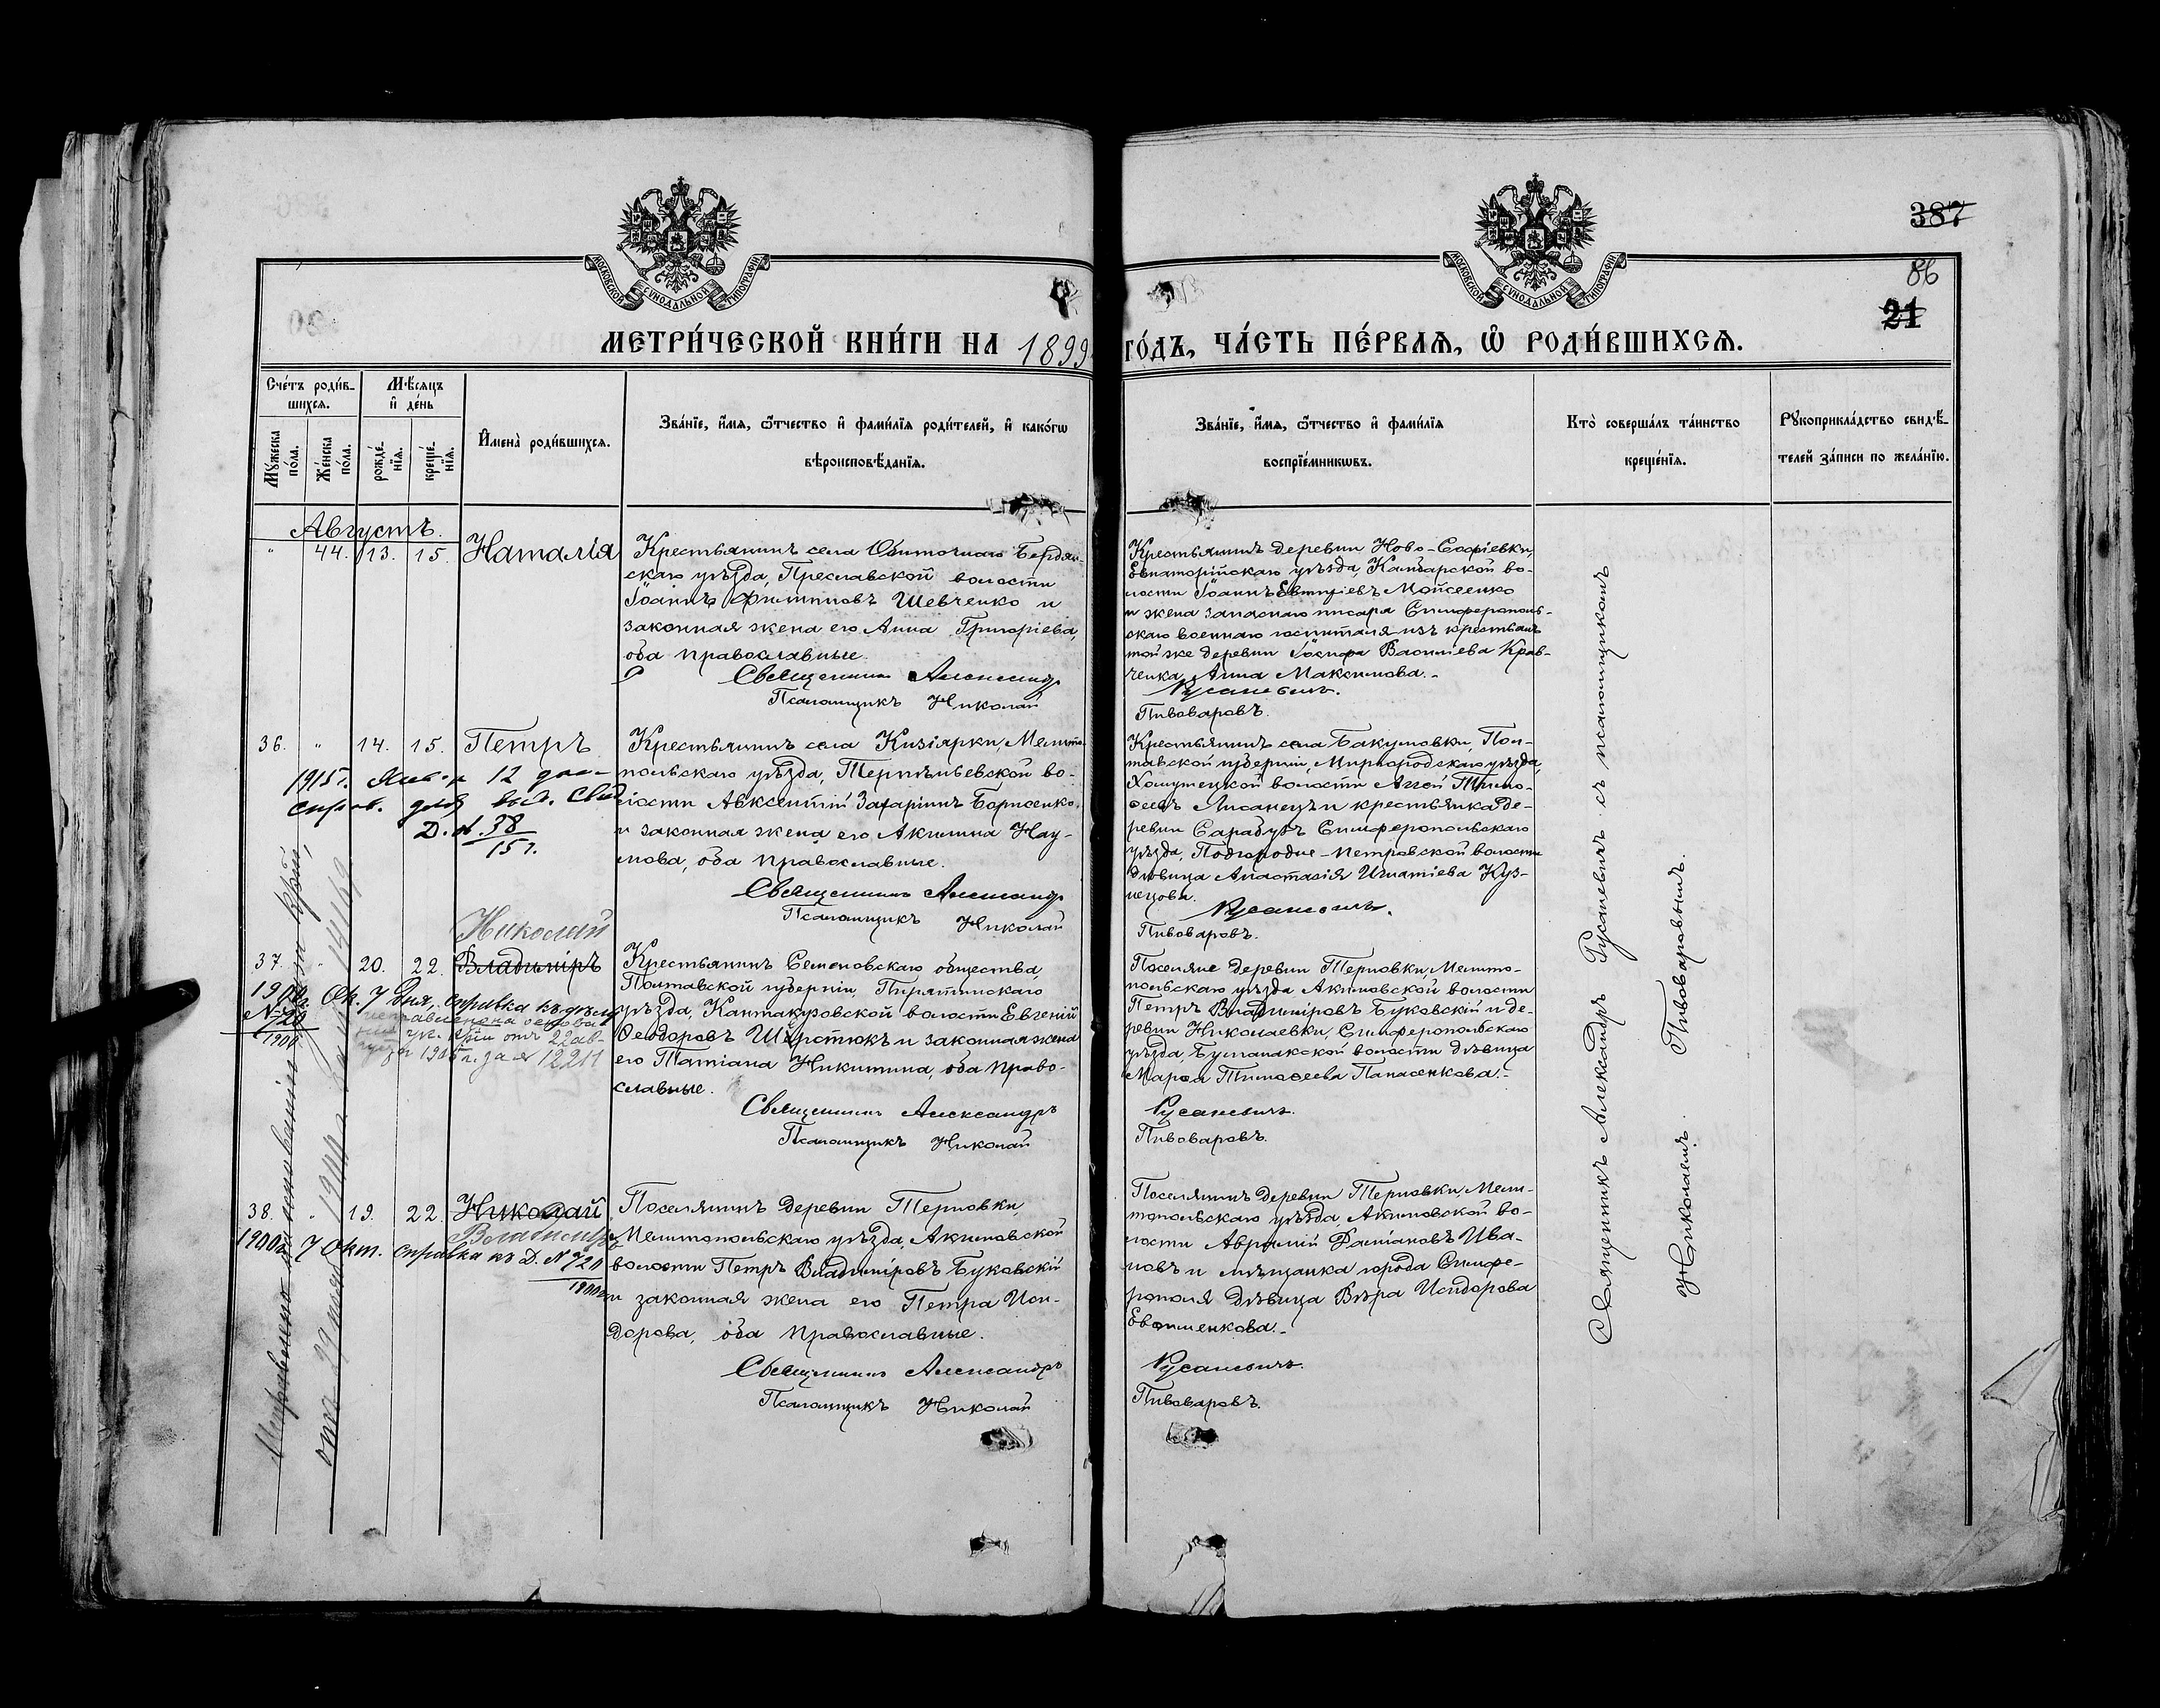 387
86
21
МОСКОВСКОЙ СѴНОДАЛЬНОЙ ТИПОГРАФІИ
МОСКОВСКОЙ СѴНОДАЛЬНОЙ ТИПОГРАФІИ
МЕТРИ́ЧЕСКОЙ КНИ́ГИ НА 1899 ГО́ДЪ, ЧА́СТЬ ПЕ́РВАѦ, Ѡ РОДИ́ВШИХСѦ.
Сче́тъ роди́в-
шихсѧ.
Мѣ́сѧцъ
и де́нь
Мꙋ́жеска по́ла.
Же́нска по́ла.
рожде́нїѧ.
креще́нїѧ.
Имена̀ роди́вшихсѧ.
Зва́нїе, и́мѧ, ѻ́тчество и фами́лїѧ роди́телей, и како́гѡ
вѣроисповѣ́данїѧ.
Зва́нїе, и́мѧ, ѻ́тчество и фами́лїѧ
воспрїе́мникѡвъ.
Кто̀ соверша́лъ та́инство
креще́нїѧ.
Рꙋкоприкла́дство свидѣ́-
телей за́писи по жела́нїю.
Августъ.
" 44. 13. 15. Наталія
Крестьянинъ села Обиточнаго Бердян-
скаго уѣзда, Преславской волости
Іоаннъ Филипповъ Шевченко и
законная жена его Анна Григоріева,
оба православные.
Священникъ Александръ
Псаломщикъ Николай
Крестьянинъ деревни Ново-Софіевки,
Евпаторійскаго уѣзда, Камбарской во-
лости Іоаннъ Евтихіевъ Мойсеенко
и жена запаснаго писаря Симферополь-
скаго военнаго госпиталя изъ крестьянъ
той же деревни Іосифа Васильева Крав-
ченка, Анна Максимова.-
Русаневичъ.
Пивоваровъ.
36. " 14. 15. Петръ
1915 г. Января 12 дня
справ. для выд. Свид
Д. № 38
15 г.
Крестьянинъ села Кизіярки, Мелито-
польскаго уѣзда, Терпѣньевской во-
лости Авксентій Захаріинъ Борисенко
и законная жена его Акилина Нау-
мова, оба православные.
Священникъ Александръ
Псаломщикъ Николай
Крестьянинъ села Бакумовки, Пол-
тавской губерніи, Миргородскаго уѣзда,
Хомутецкой волости Аггей Тимо-
ѳеевъ Лисанецъ и крестьянка де-
ревни Сарабузъ Симферопольскаго
уѣзда, Подгородне-Петровской волости
дѣвица Анастасія Игнатіева Куз-
нецова.
Русаневичъ.
Пивоваровъ.
Николай
37. " 20. 22. Владиміръ
1900 г. Ок. 7 дня, справка къ дѣлу
№ 720
1900
Крестьянинъ Семеновскаго общества,
Полтавской губерніи, Пирятинскаго
уѣзда, Кантакузовской волости Евгеній
Ѳеодоровъ Шерстюкъ и законная жена
его Татіана Никитина, оба право-
славные.
Священникъ Александръ
Псаломщикъ Николай
Поселяне деревни Терновки, Мелито-
польскаго уѣзда Акимовской волости
Петръ Владиміровъ Буковскій и де-
ревни Николаевки, Симферопольскаго
уѣзда, Булганакской волости дѣвица
Марѳа Тимоѳеева Панасенкова.-
Русаневичъ.
Пивоваровъ.
38. " 19. 22. Николай
Владиміръ
1900 г. 7 Окт. справка къ Д. № 720
1900 г.
Поселянинъ деревни Терновки,
Мелитопольскаго уѣзда, Акимовской
волости Петръ Владиміровъ Буковскій
и законная жена его Петра Иси-
дорова, оба православные.
Священникъ Александръ
Псаломщикъ Николай
Поселянинъ деревни Терновки, Мели-
топольскаго уѣзда, Акимовской во-
лости Аврамій Даміановъ Ива-
новъ и мѣщанка города Симфе-
рополя дѣвица Вѣра Исидорова
Евфименкова.-
Русаневичъ.
Пивоваровъ.
Священникъ Александръ Русаневичъ съ псаломщикомъ
Николаемъ Пивоваровымъ.